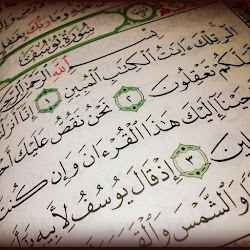 سُورَةُ يُوسُفَ
بِسْمِ اللَّهِ الرَّحْمَٰنِ
الٓر تِلْكَ ءَايَٰتُ الْكِتَٰبِ الْمُبِينِ ١ إِنَّا أَنزَ
لَّكُمْ تَعْقِلُونَ ٢ نَحْنُ نَقُصُّ عَلَيْكَ أَحْ
حَيْنَا إِلَيْكَ هَٰذَا الْقُرْءَانَ وَإِن كُنتَ
ينَ ٣ إِذْ قَالَ يُوسُفُ لِأَبِيهِ
وَالشَّمْسَ وَالْقَمَ